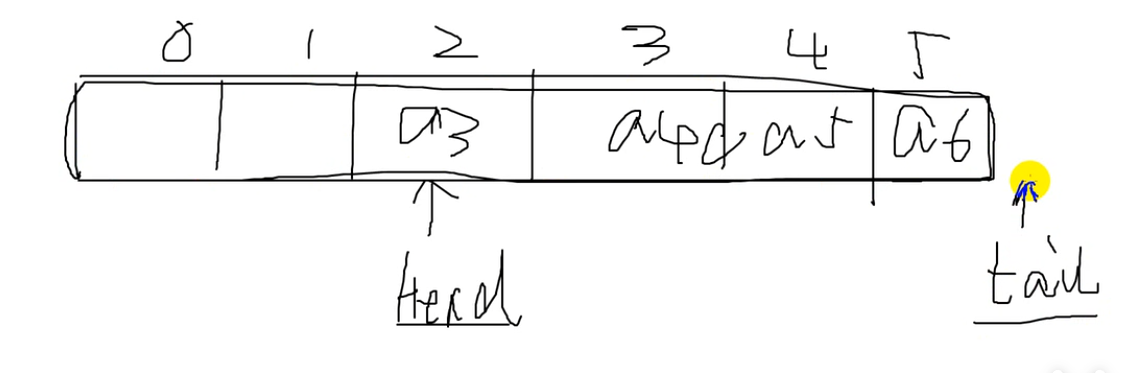 0 1 2 3 4 5
a3 a4 a5 a6
Head
tail